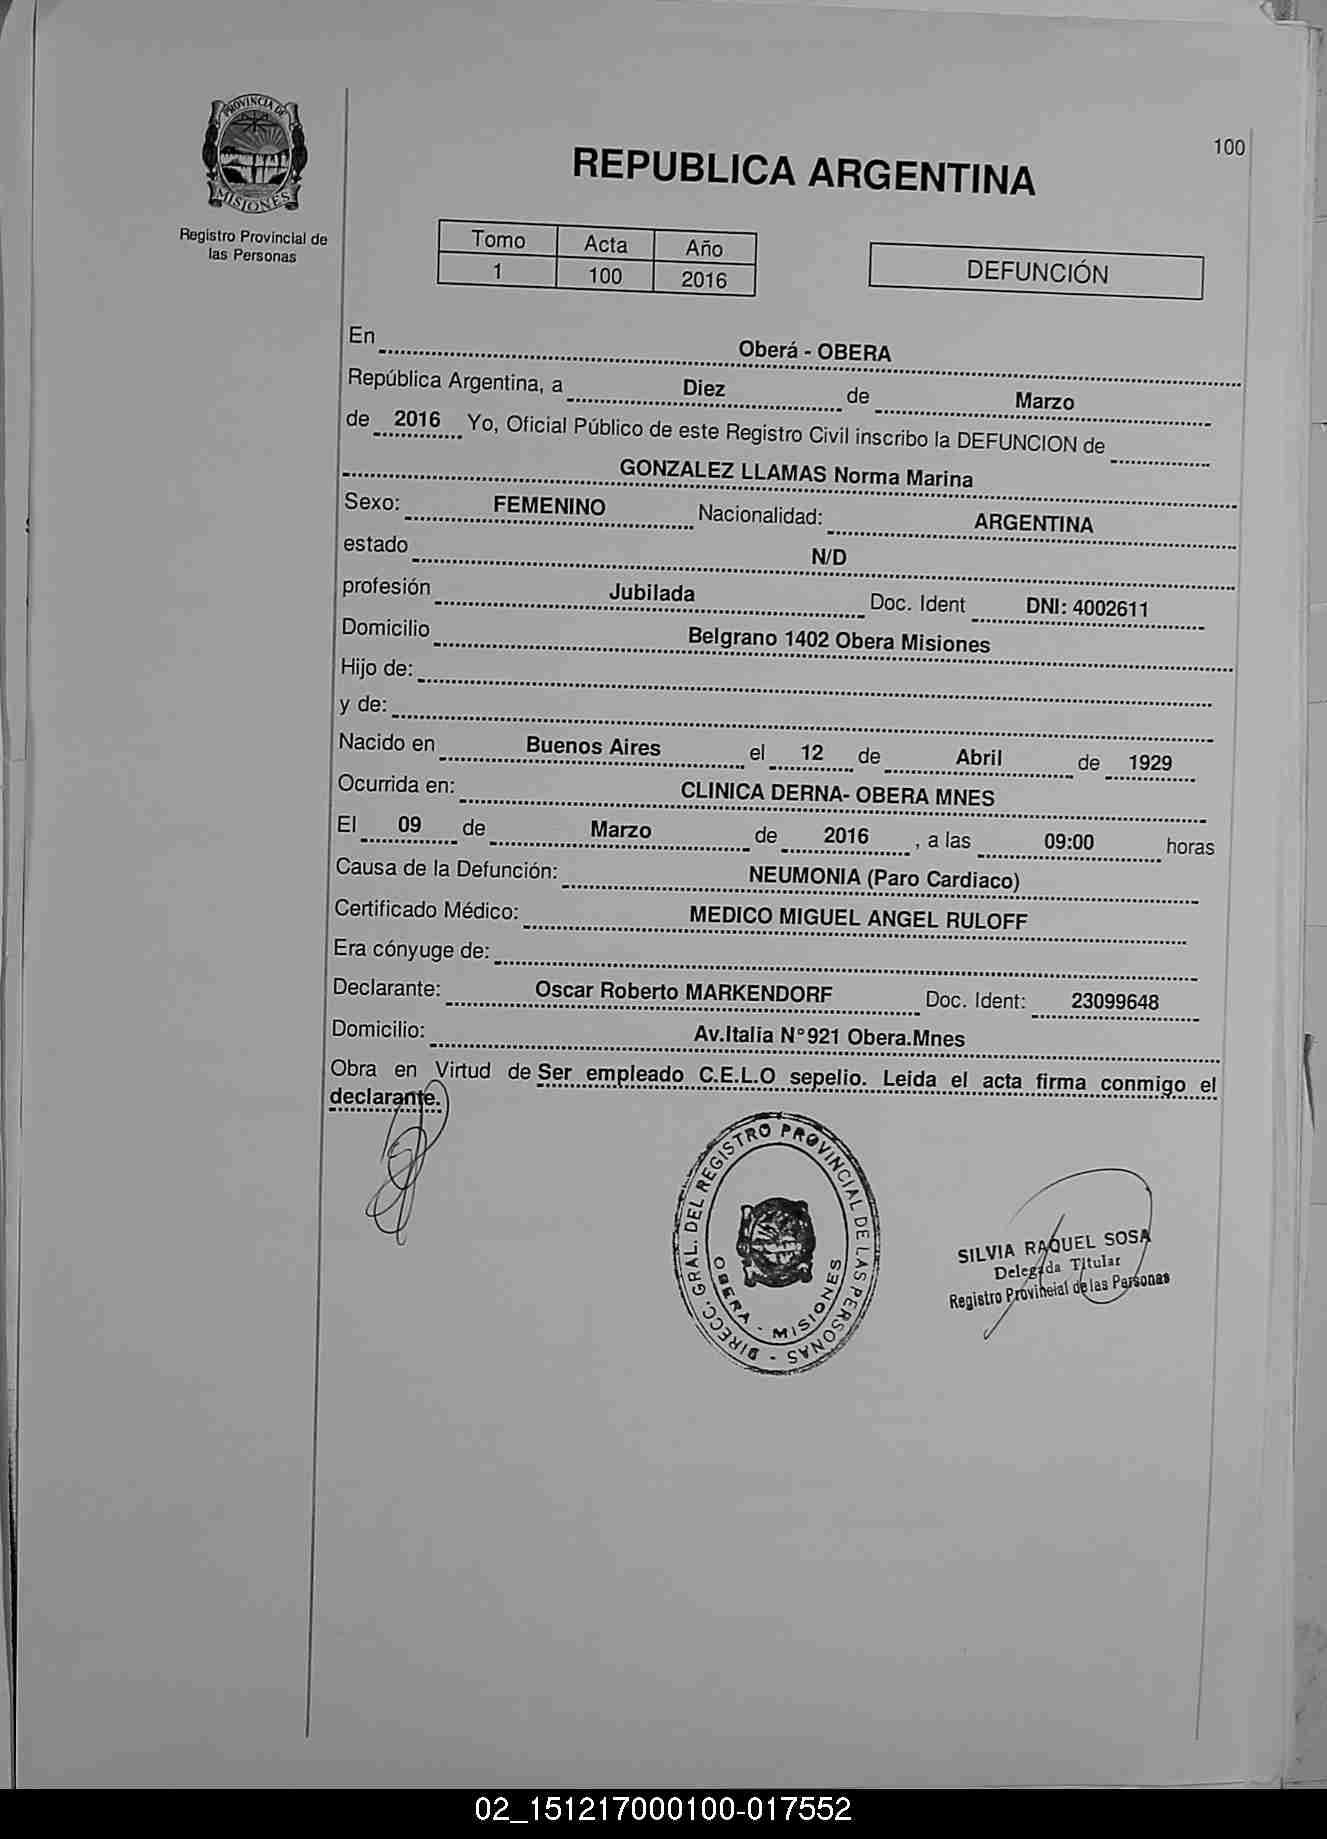 PROVINCIA DE
MISIONES
Registro Provincial de
las Personas
100
REPUBLICA ARGENTINA
Tomo Acta Año
1 100 2016
DEFUNCIÓN
En Oberá - OBERA
República Argentina, a Diez de Marzo
de 2016 Yo, Oficial Público de este Registro Civil inscribo la DEFUNCION de
GONZALEZ LLAMAS Norma Marina
Sexo: FEMENINO Nacionalidad: ARGENTINA
estado N/D
profesión Jubilada Doc. Ident DNI: 4002611
Domicilio Belgrano 1402 Obera Misiones
Hijo de:
y de:
Nacido en Buenos Aires el 12 de Abril de 1929
Ocurrida en: CLINICA DERNA- OBERA MNES
El 09 de Marzo de 2016 , a las 09:00 horas
Causa de la Defunción: NEUMONIA (Paro Cardiaco)
Certificado Médico: MEDICO MIGUEL ANGEL RULOFF
Era cónyuge de:
Declarante: Oscar Roberto MARKENDORF Doc. Ident: 23099648
Domicilio: Av.Italia N°921 Obera.Mnes
Obra en Virtud de Ser empleado C.E.L.O sepelio. Leida el acta firma conmigo el
declarante.
DIRECC. GRAL. DEL REGISTRO PROVINCIAL DE LAS PERSONAS -
OBERA - MISIONES
SILVIA RAQUEL SOSA
Delegada Titular
Registro Provincial de las Personas
02_151217000100-017552